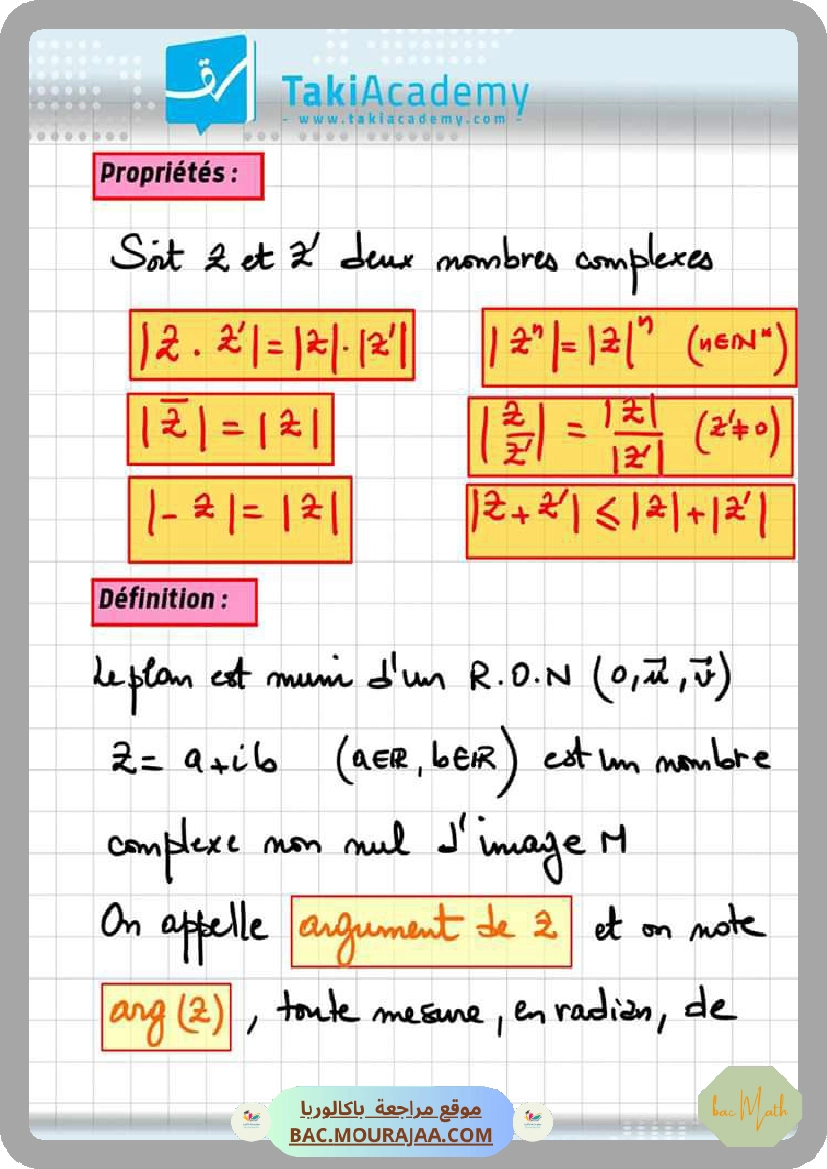 TakiAcademy
- www.takiacademy.com -
Propriétés :
Soit z et z' deux nombres complexes
|z . z'| = |z| . |z'|
|zⁿ| = |z|ⁿ (n∈ℕ*)
|z̄| = |z|
|z/z'| = |z|/|z'| (z'≠0)
|- z| = |z|
|z + z'| ⩽ |z| + |z'|
Définition :
Le plan est muni d'un R.O.N (O, u⃗, v⃗)
z = a + ib (a∈ℝ, b∈ℝ) est un nombre
complexe non nul d'image M
On appelle argument de z et on note
arg (z) , toute mesure, en radian, de
موقع مراجعة باكالوريا
BAC.MOURAJAA.COM
bac Math